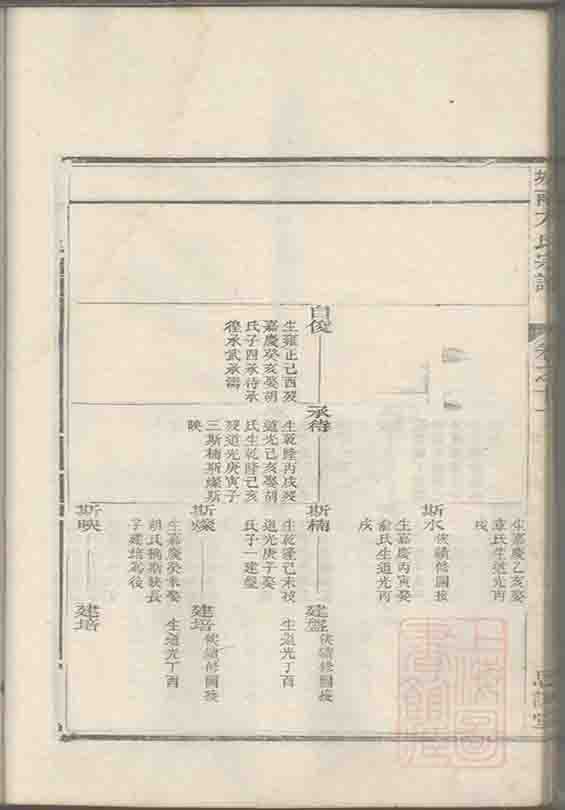 氏宗譜
生嘉慶乙亥娶
章氏生道光丙
戌
斯水
俟續修圖接
生嘉慶丙寅娶
俞氏生道光丙
戌
自俊
生雍正己酉歿
嘉慶癸亥娶胡
氏子四承待承
承武承
承待
生乾隆丙戌歿
道光己亥娶胡
氏生乾隆己亥
歿道光庚寅子
三斯楠斯燦斯
映
斯楠
生乾隆己未歿
道光庚子娶
氏子一建盤
建盤
俟續修圖接
生道光丁酉
斯燦
生嘉慶癸未娶
胡氏楠斯映長
子建培為後
建培
俟續修圖接
生道光丁酉
斯映
建培
上海圖
書館藏